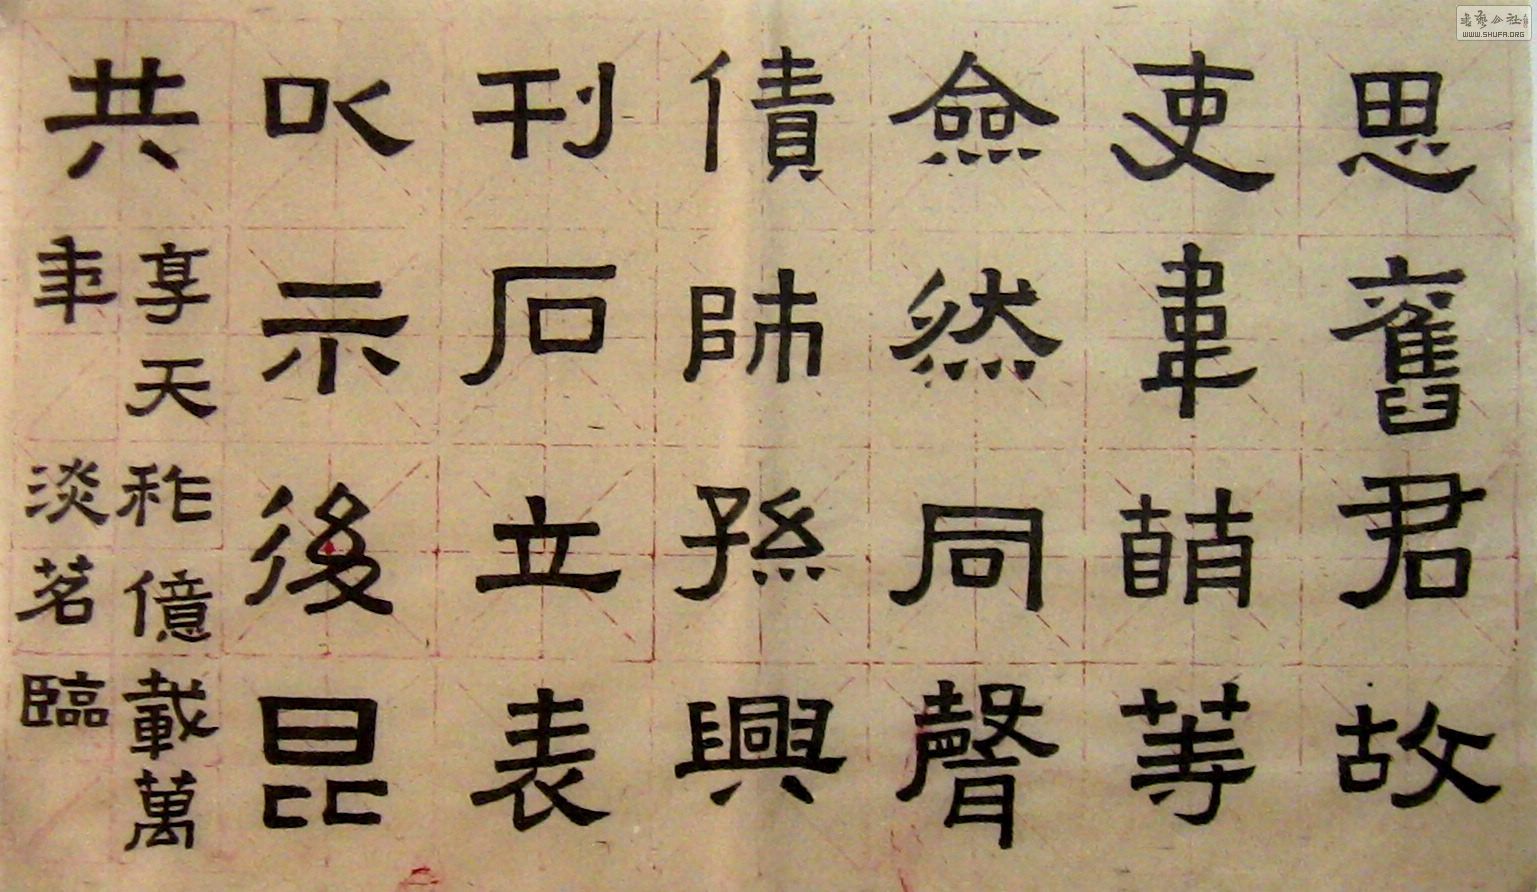 思舊君故
吏韋萌等
僉然同聲
債師孫興
刊石立表
以示後昆
共
享天祚億載萬
年 淡茗臨
書藝公社
WWW.SHUFA.ORG